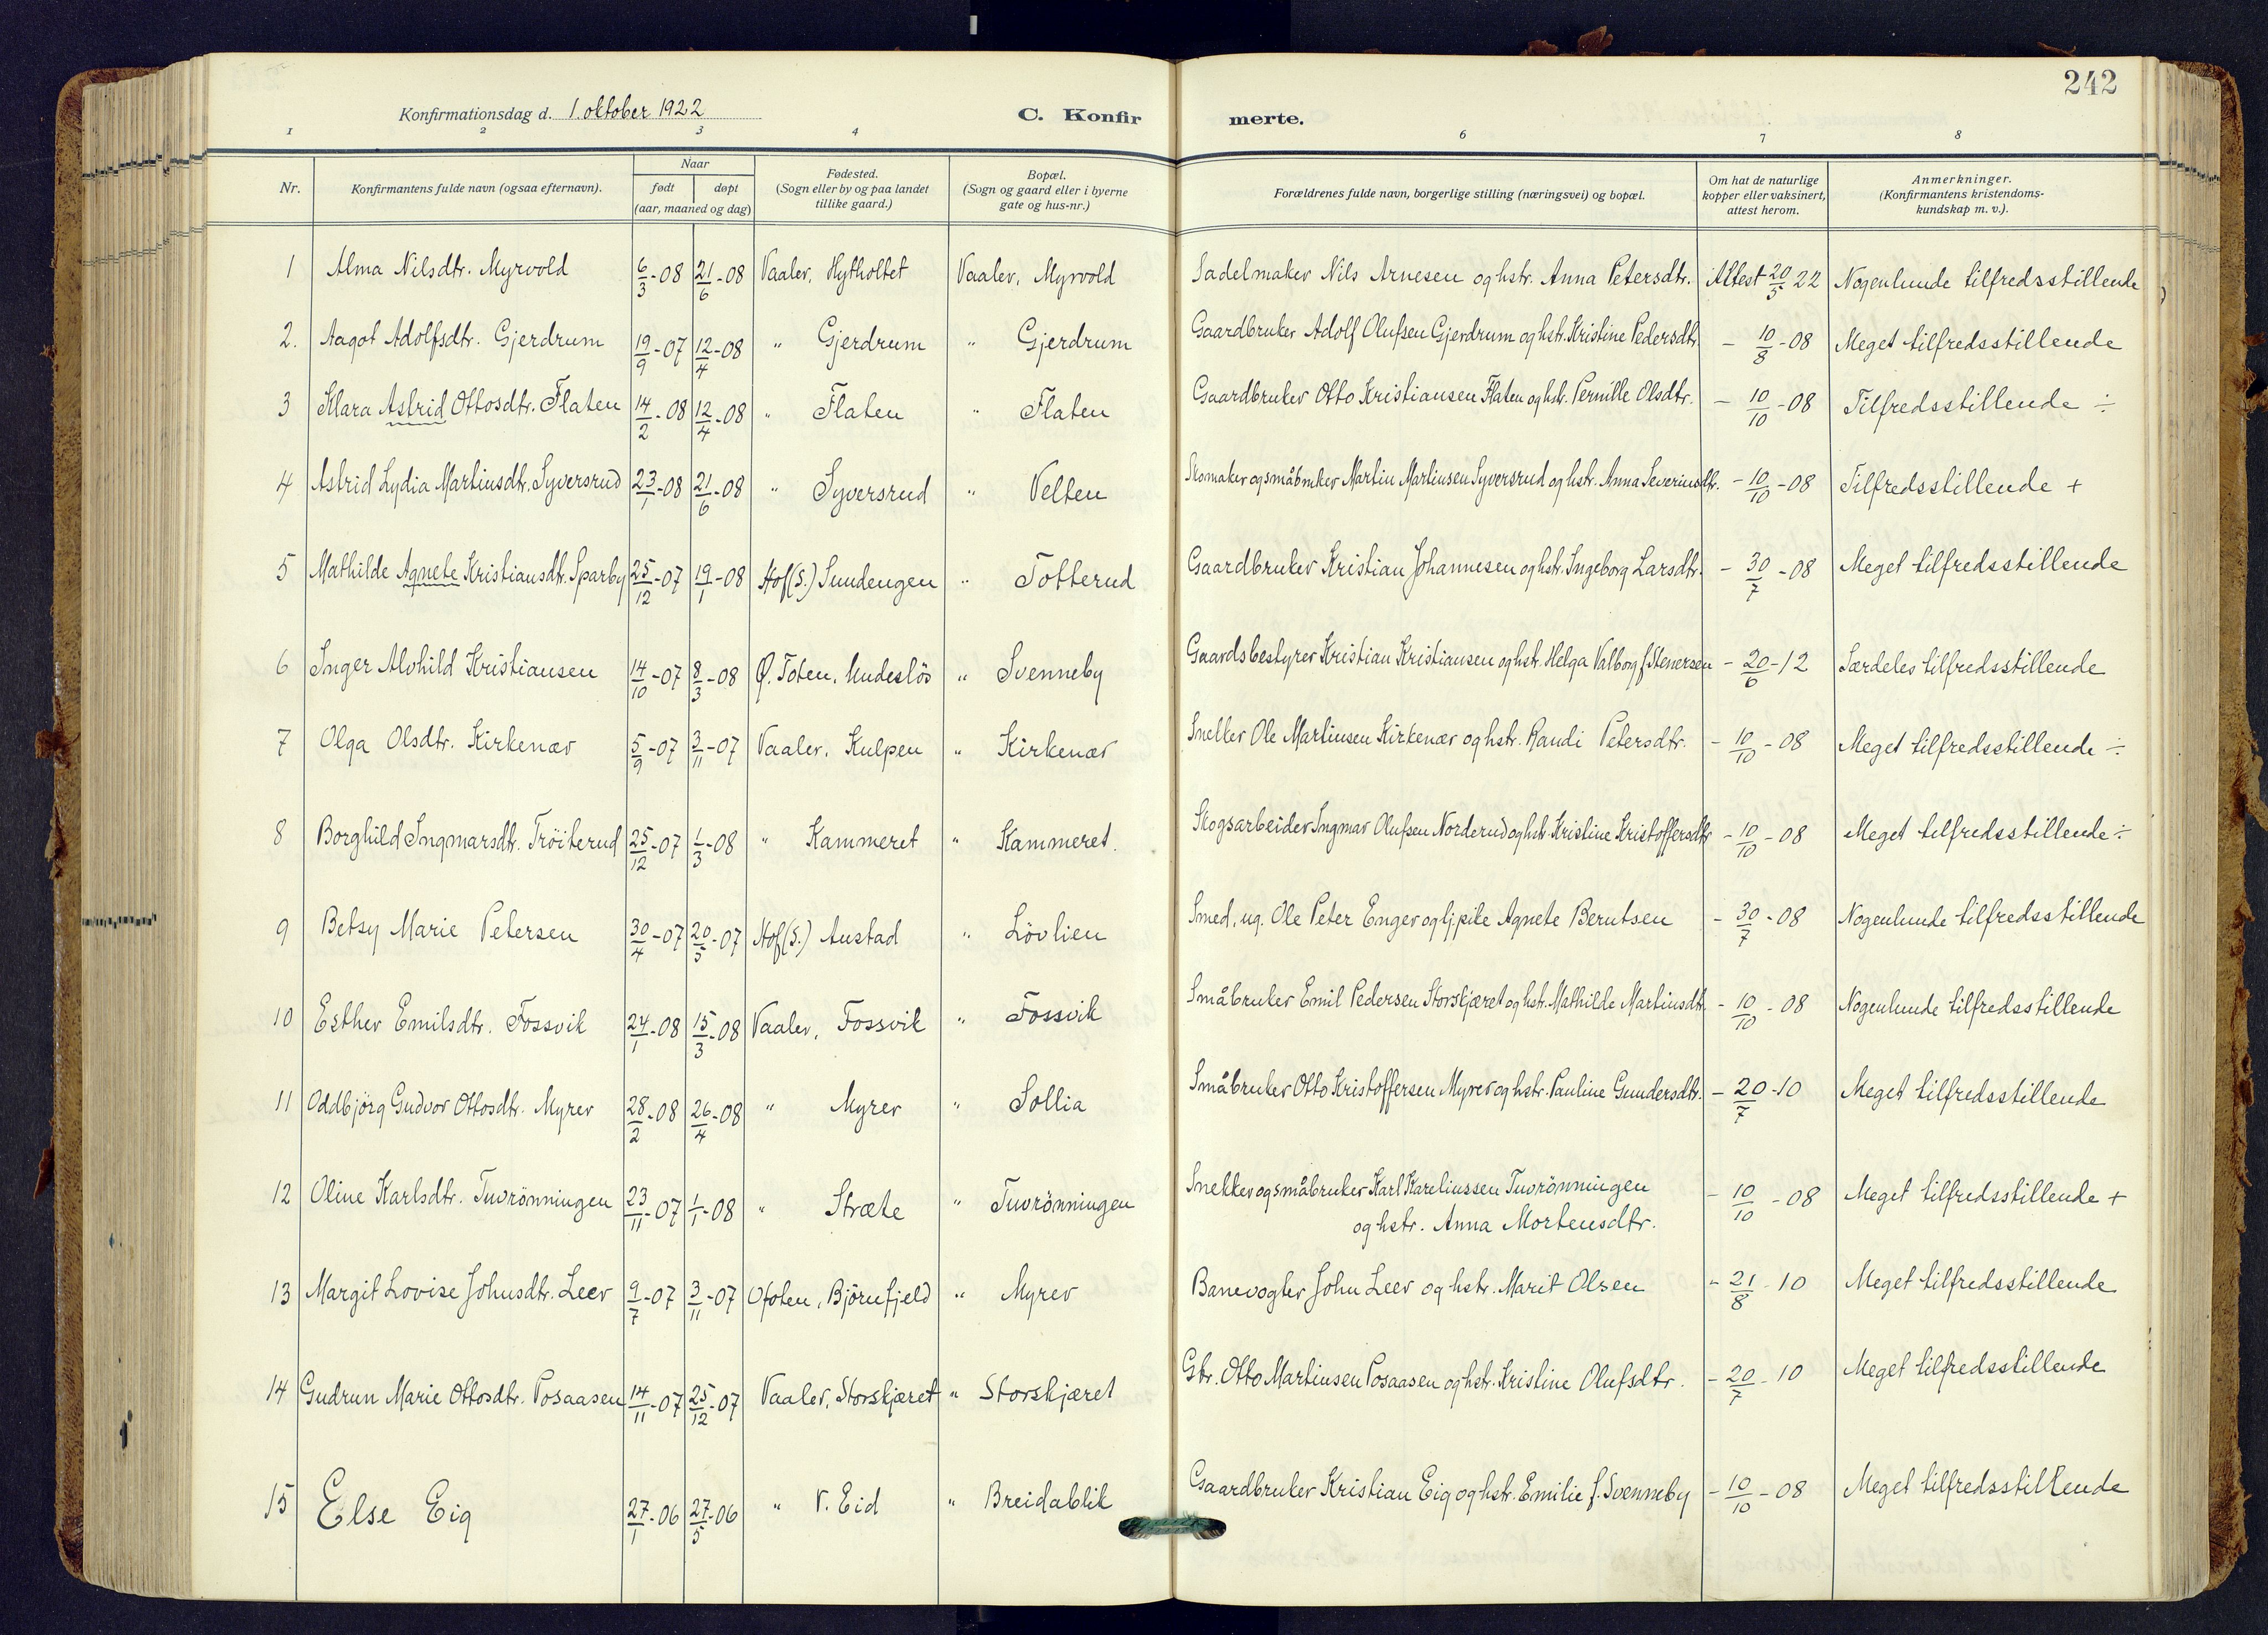 242
Konfirmationsdag d. 1. oktober 1922 C. Konfir merte.
1 2 3 4 6 7 8
Nr. Konfirmantens fulde navn (ogsaa efternavn). Naar født døpt (aar, maaned og dag) Fødested. (Sogn eller by og paa landet tillike gaard.) Bopæl. (Sogn og gaard eller i byerne gate og hus-nr.) Forældrenes fulde navn, borgerlige stilling (næringsvei) og bopæl. Om hat de naturlige kopper eller vaksinert, attest herom. Anmerkninger. (Konfirmantens kristendoms-kundskap m. v.).
1 Alma Nilsdtr. Myrvold 6/3-08 21/6-08 Vaaler, Hytholtet Vaaler, Myrvold Sadelmaker Nils Arnesen og hstr. Anna Petersdtr. Attest 20/5 22 Nogenlunde tilfredsstillende
2. Aagot Adolfsdtr. Gjerdrum 19/9-07 12/4-08 " Gjerdrum " Gjerdrum Gaardbruker Adolf Olufsen Gjerdrum og hstr. Kristine Pedersdtr. - 10/8-08 Meget tilfredsstillende
3 Klara Astrid Ottosdtr. Flaten 14/2-08 12/4-08 " Flaten " Flaten Gaardbruker Otto Kristiansen Flaten og hstr. Pernille Olsdtr. - 10/10-08 Tilfredsstillende ÷
4 Astrid Lydia Martinsdtr. Syversrud 23/1-08 21/6-08 " Syversrud " Velten Skomaker og småbruker Martin Martinsen Syversrud og hstr. Anna Severinsdtr. - 10/10-08 Tilfredsstillende +
5 Mathilde Agnete Kristiansdtr. Sparby 25/12-07 19/1-08 Hof (S.) Sundengen " Totterud Gaardbruker Kristian Johannesen og hstr. Ingeborg Larsdtr. - 30/7-08 Meget tilfredsstillende
6 Inger Alvhild Kristiansen 14/10-07 8/3-08 Ø. Toten, Undeslös " Svenneby Gaardsbestyrer Kristian Kristiansen og hstr. Helga Valborg f. Stenersen - 20/6-12 Særdeles tilfredsstillende
7 Olga Olsdtr. Kirkenær 5/9-07 3/11-07 Vaaler, Kulpen " Kirkenær Snekker Ole Martinsen Kirkenær og hstr. Randi Petersdtr. - 10/10-08 Meget tilfredsstillende ÷
8 Borghild Ingmarsdtr. Tröiterud 25/12-07 1/3-08 " Kammeret " Kammeret. Skogsarbeider Ingmar Olufsen Norderud og hstr. Kristine Kristoffersdtr - 10/10-08 Meget tilfredsstillende ÷
9 Betsy Marie Petersen 30/4-07 20/5-07 Hof (S.) Austad " Lövlien Smed, ug. Ole Peter Enger og tj.pike Agnete Berntsen - 30/7-08 Nogenlunde tilfredsstillende
10 Esther Emilsdtr. Fossvik 24/1-08 15/3-08 Vaaler, Fossvik " Fossvik Småbruker Emil Pedersen Storskjæret og hstr. Mathilde Martinsdtr. - 10/10-08 Nogenlunde tilfredsstillende
11 Oddbjörg Gudvor Ottosdtr. Myrer 28/2-08 26/4-08 " Myrer " Sollia Småbruker Otto Kristoffersen Myrer og hstr. Pauline Gundersdtr. - 20/7-10 Meget tilfredsstillende
12 Oline Karlsdtr. Tuvrönningen 23/11-07 1/1-08 " Stræte " Tuvrönningen Snekker og småbruker Karl Kareliussen Tuvrönningen
og hstr. Anna Mortensdtr. - 10/10-08 Meget tilfredsstillende +
13 Margit Lovise Johnsdtr. Leer 9/7-07 3/11-07 Ofoten, Björnfjeld " Myrer Banevogter John Leer og hstr. Marit Olsen - 21/8-10 Meget tilfredsstillende
14 Gudrun Marie Ottosdtr. Posaasen 14/11-07 25/12-07 Vaaler, Storskjæret " Storskjæret Gbr. Otto Martinsen Posaasen og hstr. Kristine Olufsdtr. - 20/7-10 Meget tilfredsstillende
15 Else Eig 27/1-06 27/5-06 " V. Eid " Breidablik Gaardbruker Kristian Eig og hstr. Emilie f. Svenneby - 10/10-08 Meget tilfredsstillende